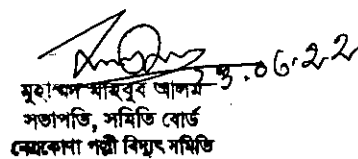 23.06.22
মুহাম্মদ মাহবুব আলম
সভাপতি, সমিতি বোর্ড
নেত্রকোণা পল্লী বিদ্যুৎ সমিতি